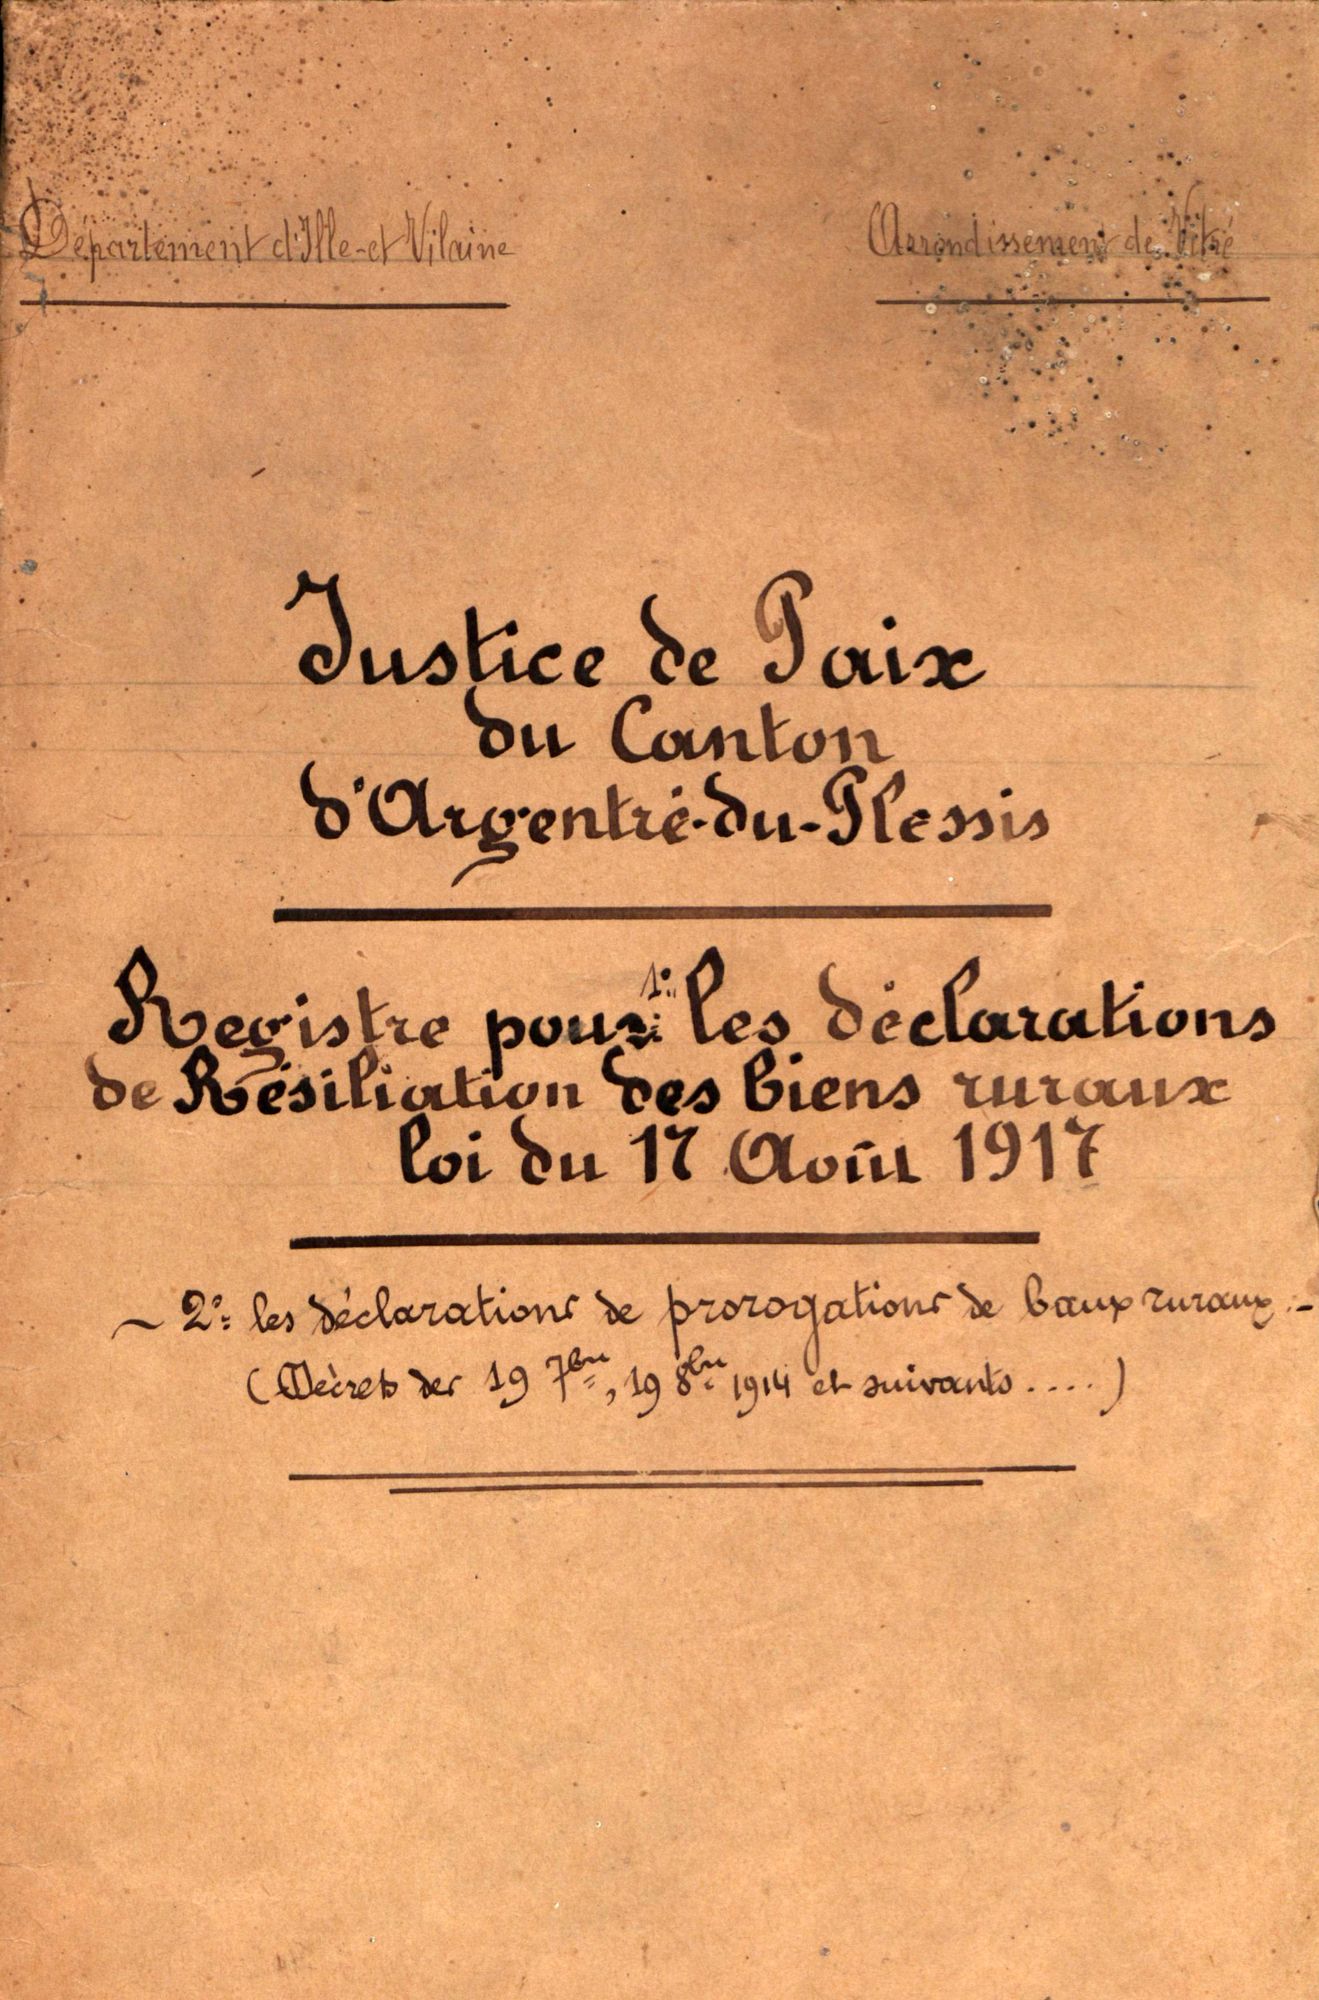 Département d'Ille-et Vilaine
Arrondissement de Vitré
Justice de Paix
du Canton
d'Argentré-du-Plessis
Registre pour: 1º les déclarations
de Résiliation des biens ruraux
loi du 17 Août 1917
~ 2º: les déclarations de prorogations de baux ruraux.-
(Décrets des 19 7bre, 19 8bre 1914 et suivants....)